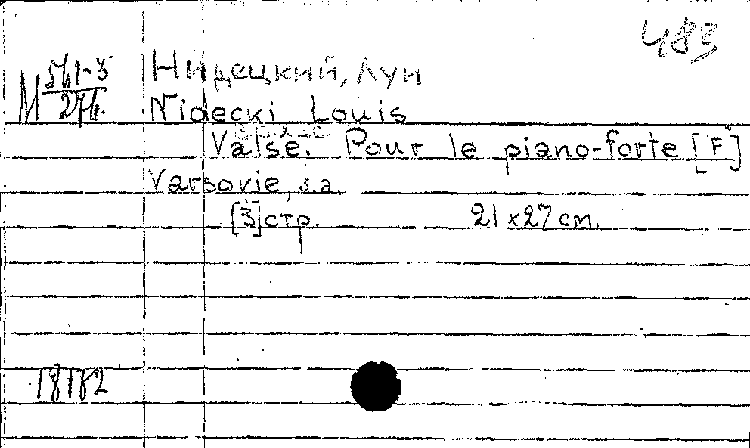 483
М 561-3
27
Нидецкий, Луи
Nidecki Louis
Valse. Pour le piano-forte [F]
Varsovie, s.a.
[3] стр. 21 x 27 см.
18182